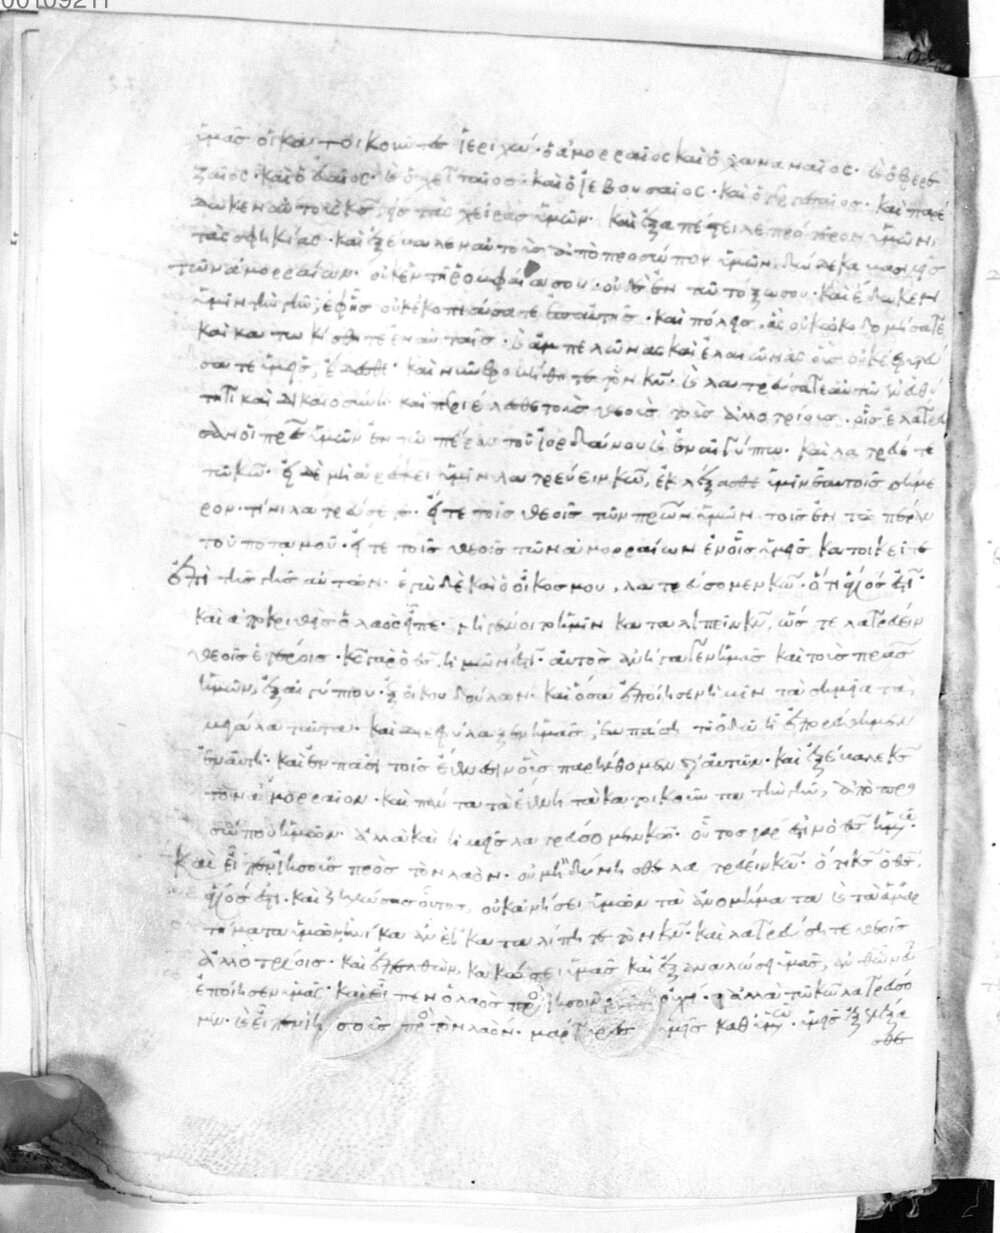 00109211
ὑμᾶς οἱ κατοικοῦντες ἱεριχώ· ὁ ἀμορραῖος καὶ ὁ χαναναῖος· καὶ ὁ φερε
ζαῖος· καὶ ὁ εὐαῖος· καὶ ὁ χετταῖος· καὶ ὁ ἰεβουσαῖος· καὶ ὁ γεργεσαῖος· καὶ παρέ
δωκεν αὐτοὺς κς εἰς τὰς χεῖρας ὑμῶν· καὶ ἐξαπέστειλε προτέραν ὑμῶν
τὰς σφηκίας· καὶ ἐξέβαλεν αὐτοὺς ἀπὸ προσώπου ὑμῶν δώδεκα βασιλεῖς
τῶν ἀμορραίων· οὐκ ἐν τῇ ῥομφαία σου· οὐδὲ ἐν τῶ τόξω σου· καὶ ἔδωκεν
ὑμῖν γῆν, ἐφ' ἧς οὐκ ἐκοπιάσατε ἐπ' αὐτῆς· καὶ πόλεις, ἃς οὐκ ὠκοδομήσατε
καὶ κατωκίσθητε ἐν αὐταῖς· καὶ ἀμπελῶνας καὶ ἐλαιῶνας οὓς οὐκ ἐφυτεύ
σατε ὑμεῖς, ἔδεσθε· καὶ νῦν φοβήθητε τὸν κν· καὶ λατρεύσατε αὐτῶ ἐν εὐθύ
τητι καὶ δικαιοσύνη· καὶ περιέλεσθε τοὺς θεοὺς τοὺς ἀλλοτρίους· οἷς ἐλάτρευ
σαν οἱ πρες ὑμῶν ἐν τῶ πέραν τοῦ ἰορδάνου καὶ ἐν αἰγύπτω· καὶ λατρεύετε
τῶ κω· εἰ δὲ μὴ ἀρέσκει ὑμῖν λατρεύειν κω, ἐκλέξασθε ὑμῖν ἑαυτοῖς σήμε
ρον· τίνι λατρεύσετε· εἴτε τοῖς θεοῖς τῶν πρων ὑμῶν τοῖς ἐν τῶ πέραν
τοῦ ποταμοῦ· εἴτε τοῖς θεοῖς τῶν ἀμορραίων ἐν οἷς ὑμεῖς κατοικεῖτε
ἐπὶ τῆς γῆς αὐτῶν· ἐγὼ δὲ καὶ ὁ οἶκος μου, λατρεύσομεν κω· ὅτι ἅγιός ἐστι·
καὶ ἀποκριθεὶς ὁ λαὸς εἶπε· μὴ γένοιτο ἡμῖν καταλιπεῖν κν, ὥστε λατρεύειν
θεοῖς ἑτέροις· κς γὰρ ὁ θς ἡμῶν ἐστι· αὐτὸς ἀνήγαγεν ἡμᾶς καὶ τοὺς πρας
ἡμῶν, ἐξ αἰγύπτου· ἐξ οἴκου δούλων· καὶ ὅσα ἐποίησεν ἡμῖν τὰ σημεῖα τὰ
μεγάλα ταῦτα· καὶ διεφύλαξεν ἡμᾶς, ἐν πάση τῆ ὁδῶ ἧ ἐπορεύθημεν
ἐν αὐτῆ· καὶ ἐν πᾶσι τοῖς ἔθνεσιν οὓς παρήλθομεν δι' αὐτῶν· καὶ ἐξέβαλε κς
τὸν ἀμορραῖον· καὶ πάντα τὰ ἔθνη τὰ κατοικοῦντα τὴν γῆν, ἀπὸ προ
σώπου ἡμῶν· ἀλλὰ καὶ ἡμεῖς λατρεύσομεν κω· οὗτος γάρ ἐστιν ὁ θς ἡμῶν·
Καὶ εἶπεν ἰησοῦς πρὸς τὸν λαόν· οὐ μὴ δύνησθε λατρεύειν κω· ὅτι κς ὁ θς,
ἅγιός ἐστι· καὶ ζηλώσας οὗτος, οὐκ ἀνήσει ὑμῶν τὰ ἀνομήματα καὶ τὰ ἁμαρ
τήματα ὑμῶν, ἡνίκα ἂν ἐγκαταλίπητε τὸν κν· καὶ λατρεύσητε θεοῖς
ἀλλοτρίοις· καὶ ἐπελθὼν, κακώσει ὑμᾶς καὶ ἐξαναλώσει ὑμᾶς, ἀνθ' ὧν εὖ
ἐποίησεν ὑμᾶς· καὶ εἶπεν ὁ λαὸς πρὸς ἰησοῦν· οὐχί· ἀλλὰ τῶ κω λατρεύσο
μεν· καὶ εἶπεν ἰησοῦς πρὸς τὸν λαόν· μάρτυρες ὑμεῖς καθ' ὑμῶν· ὑμεῖς ἐξελέξα
σθε